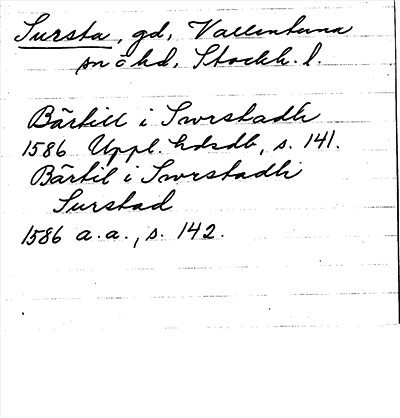 Sursta, gd, Vallentuna
sn o hd, Stockh. l.
Bärtill i Swrstadh
1586 Uppl. hdsdb, s. 141.
Bärtil i Swrstadh
Surstad
1586 a.a., s. 142.